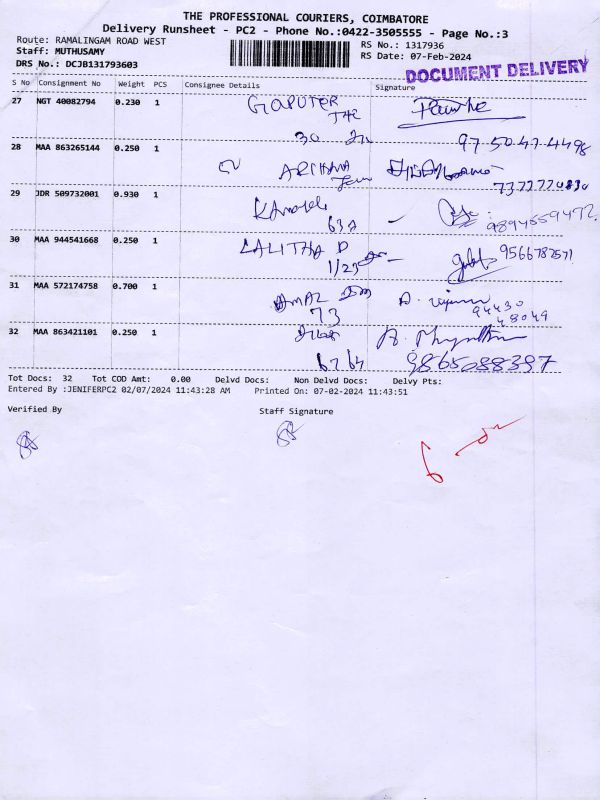 THE PROFESSIONAL COURIERS, COIMBATORE
Delivery Runsheet - PC2 - Phone No.:0422-3505555 - Page No.:3
Route: RAMALINGAM ROAD WEST RS No.: 1317936
Staff: MUTHUSAMY RS Date: 07-Feb-2024
DRS No.: DCJB131793603
DOCUMENT DELIVERY
S No Consignment No Weight PCS Consignee Details Signature
27 NGT 40082794 0.230 1
30
28 MAA 863265144 0.250 1 ARCHANA
29 JDR 509732001 0.930 1
632 9894559472
30 MAA 944541668 0.250 1 LALITHA D 9566782571
1/23
31 MAA 572174758 0.700 1
73 94430
48049
32 MAA 863421101 0.250 1
6764 9865088397
Tot Docs: 32 Tot COD Amt: 0.00 Delvd Docs: Non Delvd Docs: Delvy Pts:
Entered By :JENIFERPC2 02/07/2024 11:43:28 AM Printed On: 07-02-2024 11:43:51
Verified By Staff Signature